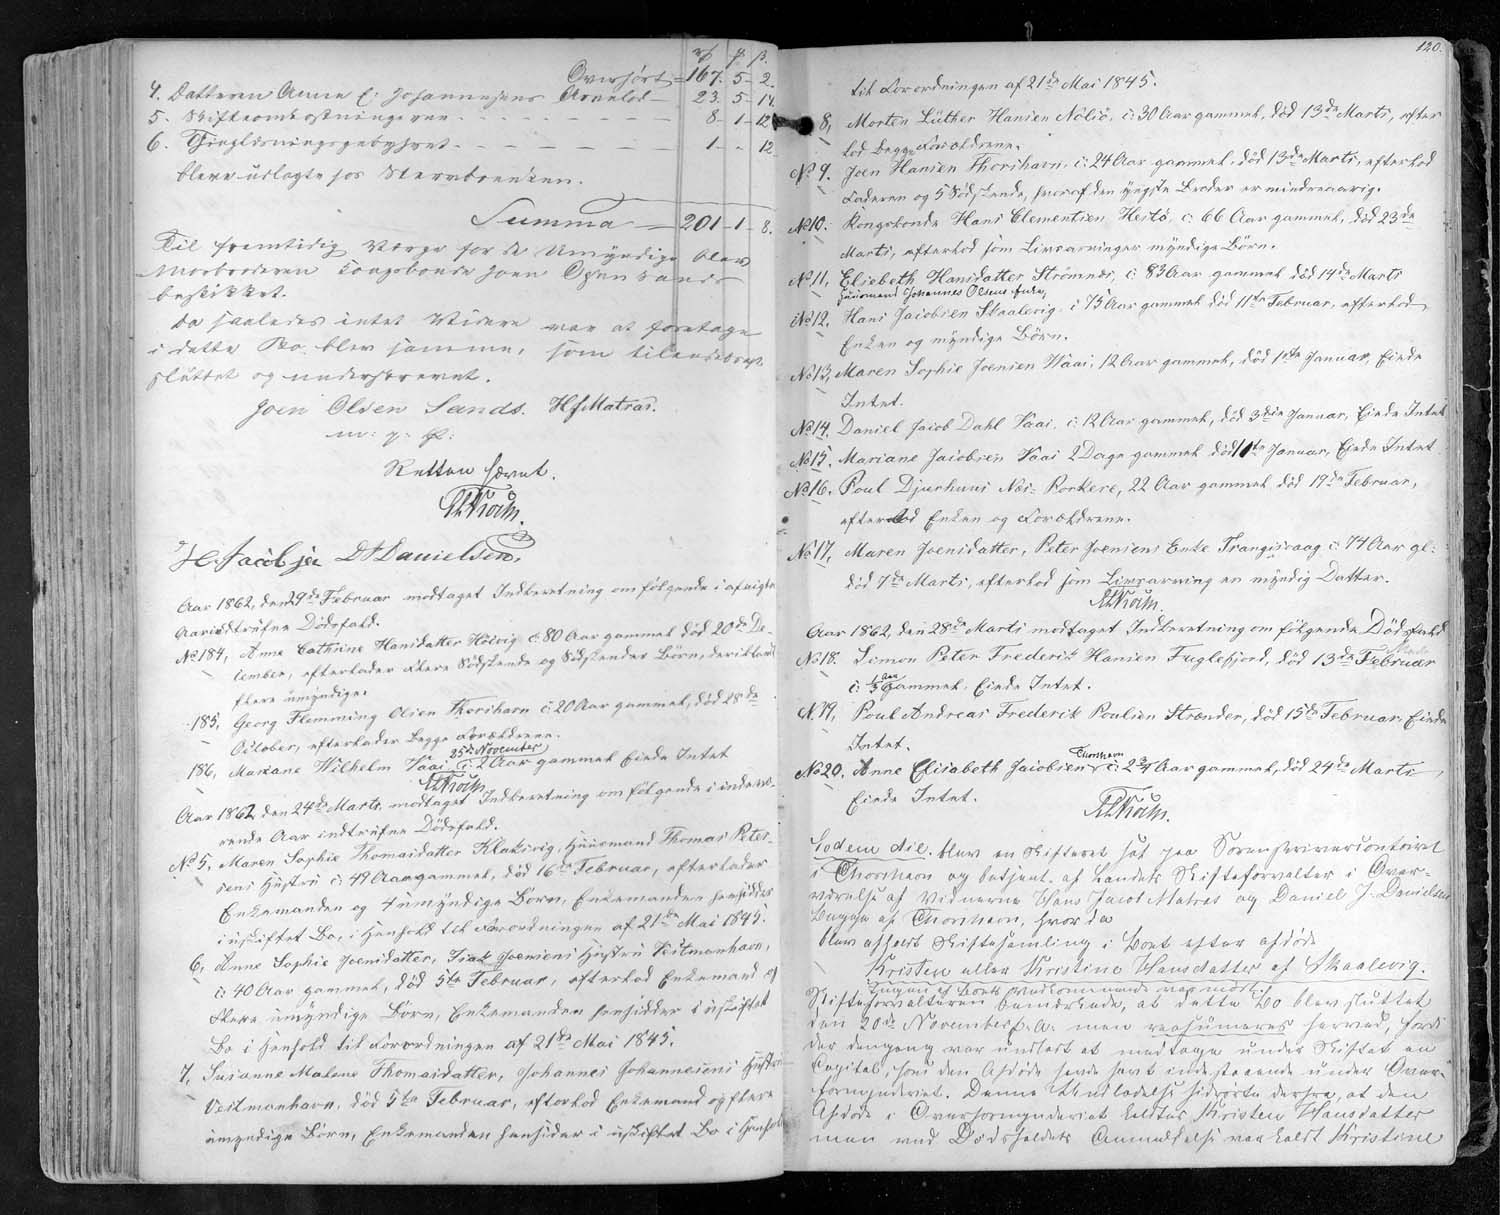 rd ₰ β.
Overført = 167. 5 - 2.
4. Datteren Anne E. Johannesens Arvelod — 23. 5 - 14.
5. Skifteomkostningerne - - - - - - — 8 - 1 - 12
6. Thinglæsningsgebyhret - - - - — 1 - " - 12
bleve udlagte hos Stervboenken.
Summa — 201 - 1 - 8.
Til fremtidig Værge for de Umyndige blev
Morbroderen Kongsbonde Joen Olsen Sands
beskikket.
Da saaledes intet Videre var at foretage
i dette Bo blev samme, som tilendebragt
sluttet og underskrevet.
Joen Olsen Sands. HJMatras.
m: p: P:
Retten hævet.
HJacobsen DJDanielsen,
Aar 1862, den 29de Februar modtaget Indberetning om følgende i afvigte
Aar indtrufne Dødsfald.
No 184, Anne Cathrine Hansdatter Hoivig c: 80 Aar gammel død 20de De-
cember, efterlader flere Sødskende og Sødskendes Börn, deriblandt
flere umyndige.
185, Georg Flemming Olsen Thorshavn c: 20 Aar gammel, död 28de
October, efterlader begge Forældrene.
25de November
186, Mariane Wilhelm Vaai c: 2 Aar gammel Eiede Intet
Aar 1862 den 24de Marts modtaget Indberetning om følgende i indevæ-
rende Aar indtrufne Dødsfald.
No 5, Maren Sophie Thomasdatter Klaksvig, Huusmand Thomas Peter-
sens Hustru c: 49 Aar gammel, död 16de Februar, efterlader
Enkemanden og 4 umyndige Börn, Enkemanden hensidder
i uskiftet Bo, i Henhold til Forordningen af 21de Mai 1845.
6, Anne Sophie Joensdatter, Isak Joensens Hustru Vestmanhavn,
c: 40 Aar gammel, död 5te Februar, efterlod Enkemand og
flere umyndige Börn, Enkemanden hensidder i uskiftet
Bo i Henhold til Forordningen af 21de Mai 1845.
7, Susanne Malene Thomasdatter, Johannes Johannesens Hustru
Vestmanhavn, död 5te Februar, efterlod Enkemand og flere
umyndige Börn, Enkemanden hensidder i uskiftet Bo i Henhold
120.
til Forordningen af 21de Mai 1845.
8, Morten Lüther Hansen Nölsö, c: 30 Aar gammel, död 13de Marts, efter
lod begge Forældrene.
No 9. Joen Hansen Thorshavn, c: 24 Aar gammel, död 13de Marts, efterlod
Faderen og 5 Södskende, hvoraf den yngste Broder er mindreaarig.
No 10. Kongsbonde Hans Clementsen Hestö, c: 66 Aar gammel, död 23de
Marts, efterlod som Livsarvinger myndige Börn.
No 11, Elsebeth Hansdatter Strömnæs, c: 83 Aar gammel död 14de Marts
Huusmand Johannes Olsens Enke,
No 12, Hans Jacobsen Skaalevig, c: 75 Aar gammel död 11te Februar, efterlod
Enken og myndige Börn.
No 13, Maren Sophie Joensen Vaai, 12 Aar gammel, död 1ste Januar, Eiede
Intet.
No 14. Daniel Jacob Dahl Vaai, c: 12 Aar gammel, död 3die Januar, Eiede Intet
No 15. Mariane Jacobsen Vaai 2 Dage gammel död 1ste Januar, Eiede Intet
No 16, Poul Djurhuus Næs-Porkere, 22 Aar gammel död 19de Februar,
efterlod Enken og Forældrene.
No 17, Maren Joensdatter, Peter Joensens Enke Trangisvaag c: 74 Aar gl:
död 7de Marts, efterlod som Livsarving en myndig Datter.
Aar 1862, den 28de Marts modtaget Indberetning om følgende Dødsfald
No 18. Simon Peter Frederik Hansen Fuglefjord, död 13de Februar
c: 1/5 Aar gammel, Eiede Intet.
No 19, Poul Andreas Frederik Poulsen Strænder, död 15de Februar, Eiede
Intet.
Thorshavn
No 20. Anne Elisabeth Jacobsen c: 2 3/4 Aar gammel, död 24de Marts
Eiede Intet.
Eodem die. blev en Skifteret sat paa Sorenskrivercontoiret
i Thorshavn og betjent af Landets Skifteforvalter i Over-
værelse af Vidnerne Hans Jacob Matras og Daniel J. Danielsen
begge af Thorshavn, hvor da
blev afholdt Skiftesamling i Boet efter afdöde
Kristen eller Kristine Hansdatter af Skaalevig.
Ingen af Boets Vedkommende var mødt.
Skifteforvalteren bemærkede, at dette Bo blev sluttet
den 20de November f. A. men reassumeres herved, fordi
der dengang var undladt at medtage under Skiftet en
Capital, som den Afdöde havde havt indestaaende under Over-
formynderiet. Denne Undladelse hidrörte derfra, at den
Afdöde i Overformynderiet kaldtes Kristen Hansdatter
men ved Dödsfaldets Anmeldelse var kaldt Kristine